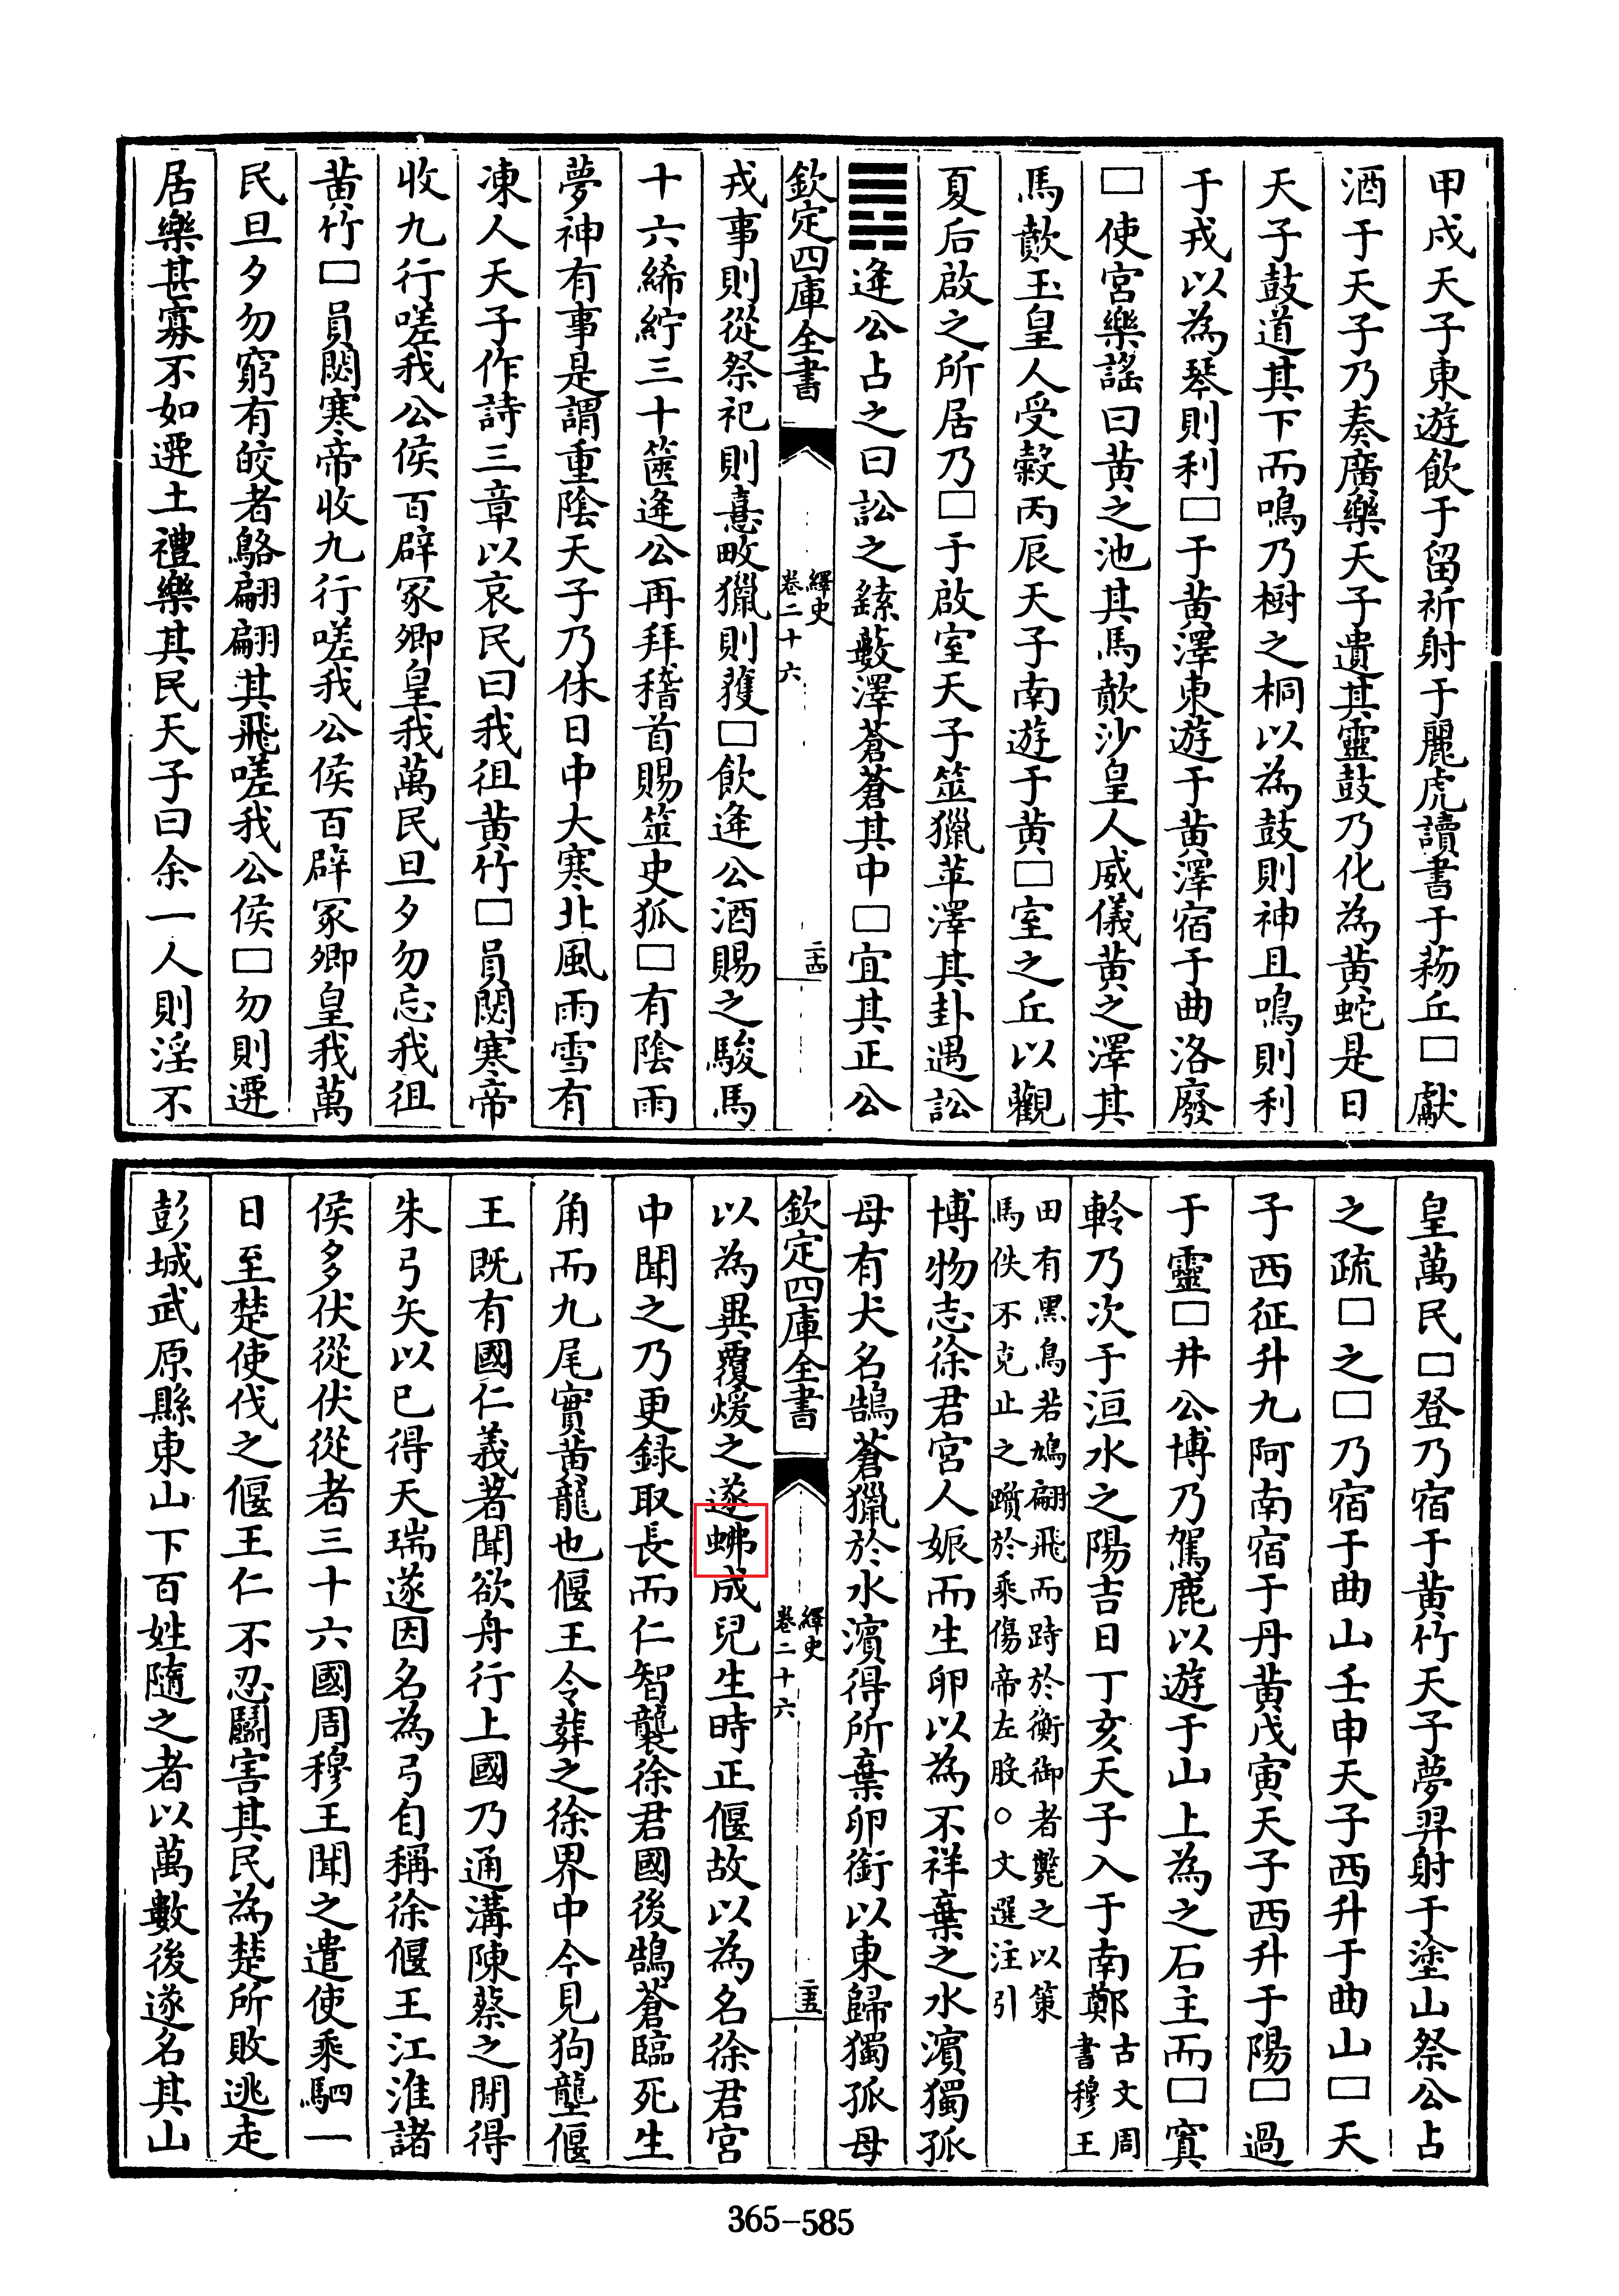 甲戍天子東遊飲于留祈射于麗虎讀書于䔮丘□獻
酒于天子乃奏廣樂天子遺其靈鼓乃化為黄蛇是日
天子鼓道其下而鳴乃樹之桐以為鼓則神且鳴則利
于戎以為琴則利□于黄澤東遊于黄澤宿于曲洛廢
□使宮樂謡曰黄之池其馬歕沙皇人威儀黄之澤其
馬歕玉皇人受榖丙辰天子南遊于黄□室之丘以觀
夏后啟之所居乃□于啟室天子筮獵苹澤其卦遇訟
䷅逄公占之曰訟之繇藪澤蒼蒼其中□宜其正公
欽定四庫全書
繹史
卷二十六
二十四
戎事則從祭祀則憙畋獵則獲□飲逄公酒賜之駿馬
十六絺紵三十篋逄公再拜稽首賜筮史狐□有陰雨
夢神有事是謂重陰天子乃休日中大寒北風雨雪有
凍人天子作詩三章以哀民曰我徂黄竹□員閟寒帝
收九行嗟我公侯百辟冢卿皇我萬民旦夕勿忘我徂
黄竹□員閟寒帝收九行嗟我公侯百辟冢卿皇我萬
民旦夕勿窮有皎者鵅翩翩其飛嗟我公侯□勿則遷
居樂甚寡不如遷土禮樂其民天子曰余一人則淫不
皇萬民□登乃宿于黄竹天子夢羿射于塗山祭公占
之疏□之□乃宿于曲山壬申天子西升于曲山□天
子西征升九阿南宿于丹黄戊寅天子西升于陽□過
于靈□井公博乃駕鹿以遊于山上為之石主而□寘
軨乃次于洹水之陽吉日丁亥天子入于南鄭古文周書穆王
田有黑鳥若鳩翩飛而跱於衡御者斃之以策
馬佚不克止之躓於乘傷帝左股○文選注引
博物志徐君宮人娠而生卵以為不祥棄之水濱獨孤
母有犬名鵠蒼獵於水濱得所棄卵銜以東歸獨孤母
欽定四庫全書
繹史
卷二十六
二十五
以為異覆煖之遂𧊶成兒生時正偃故以為名徐君宮
中聞之乃更録取長而仁智襲徐君國後鵠蒼臨死生
角而九尾實黄龍也偃王令葬之徐界中今見狗壟偃
王既有國仁義著聞欲舟行上國乃通溝陳蔡之閒得
朱弓矢以已得天瑞遂因名為弓自稱徐偃王江淮諸
侯多伏從伏從者三十六國周穆王聞之遣使乘駟一
日至楚使伐之偃王仁不忍鬭害其民為楚所敗逃走
彭城武原縣東山下百姓隨之者以萬數後遂名其山
365-585